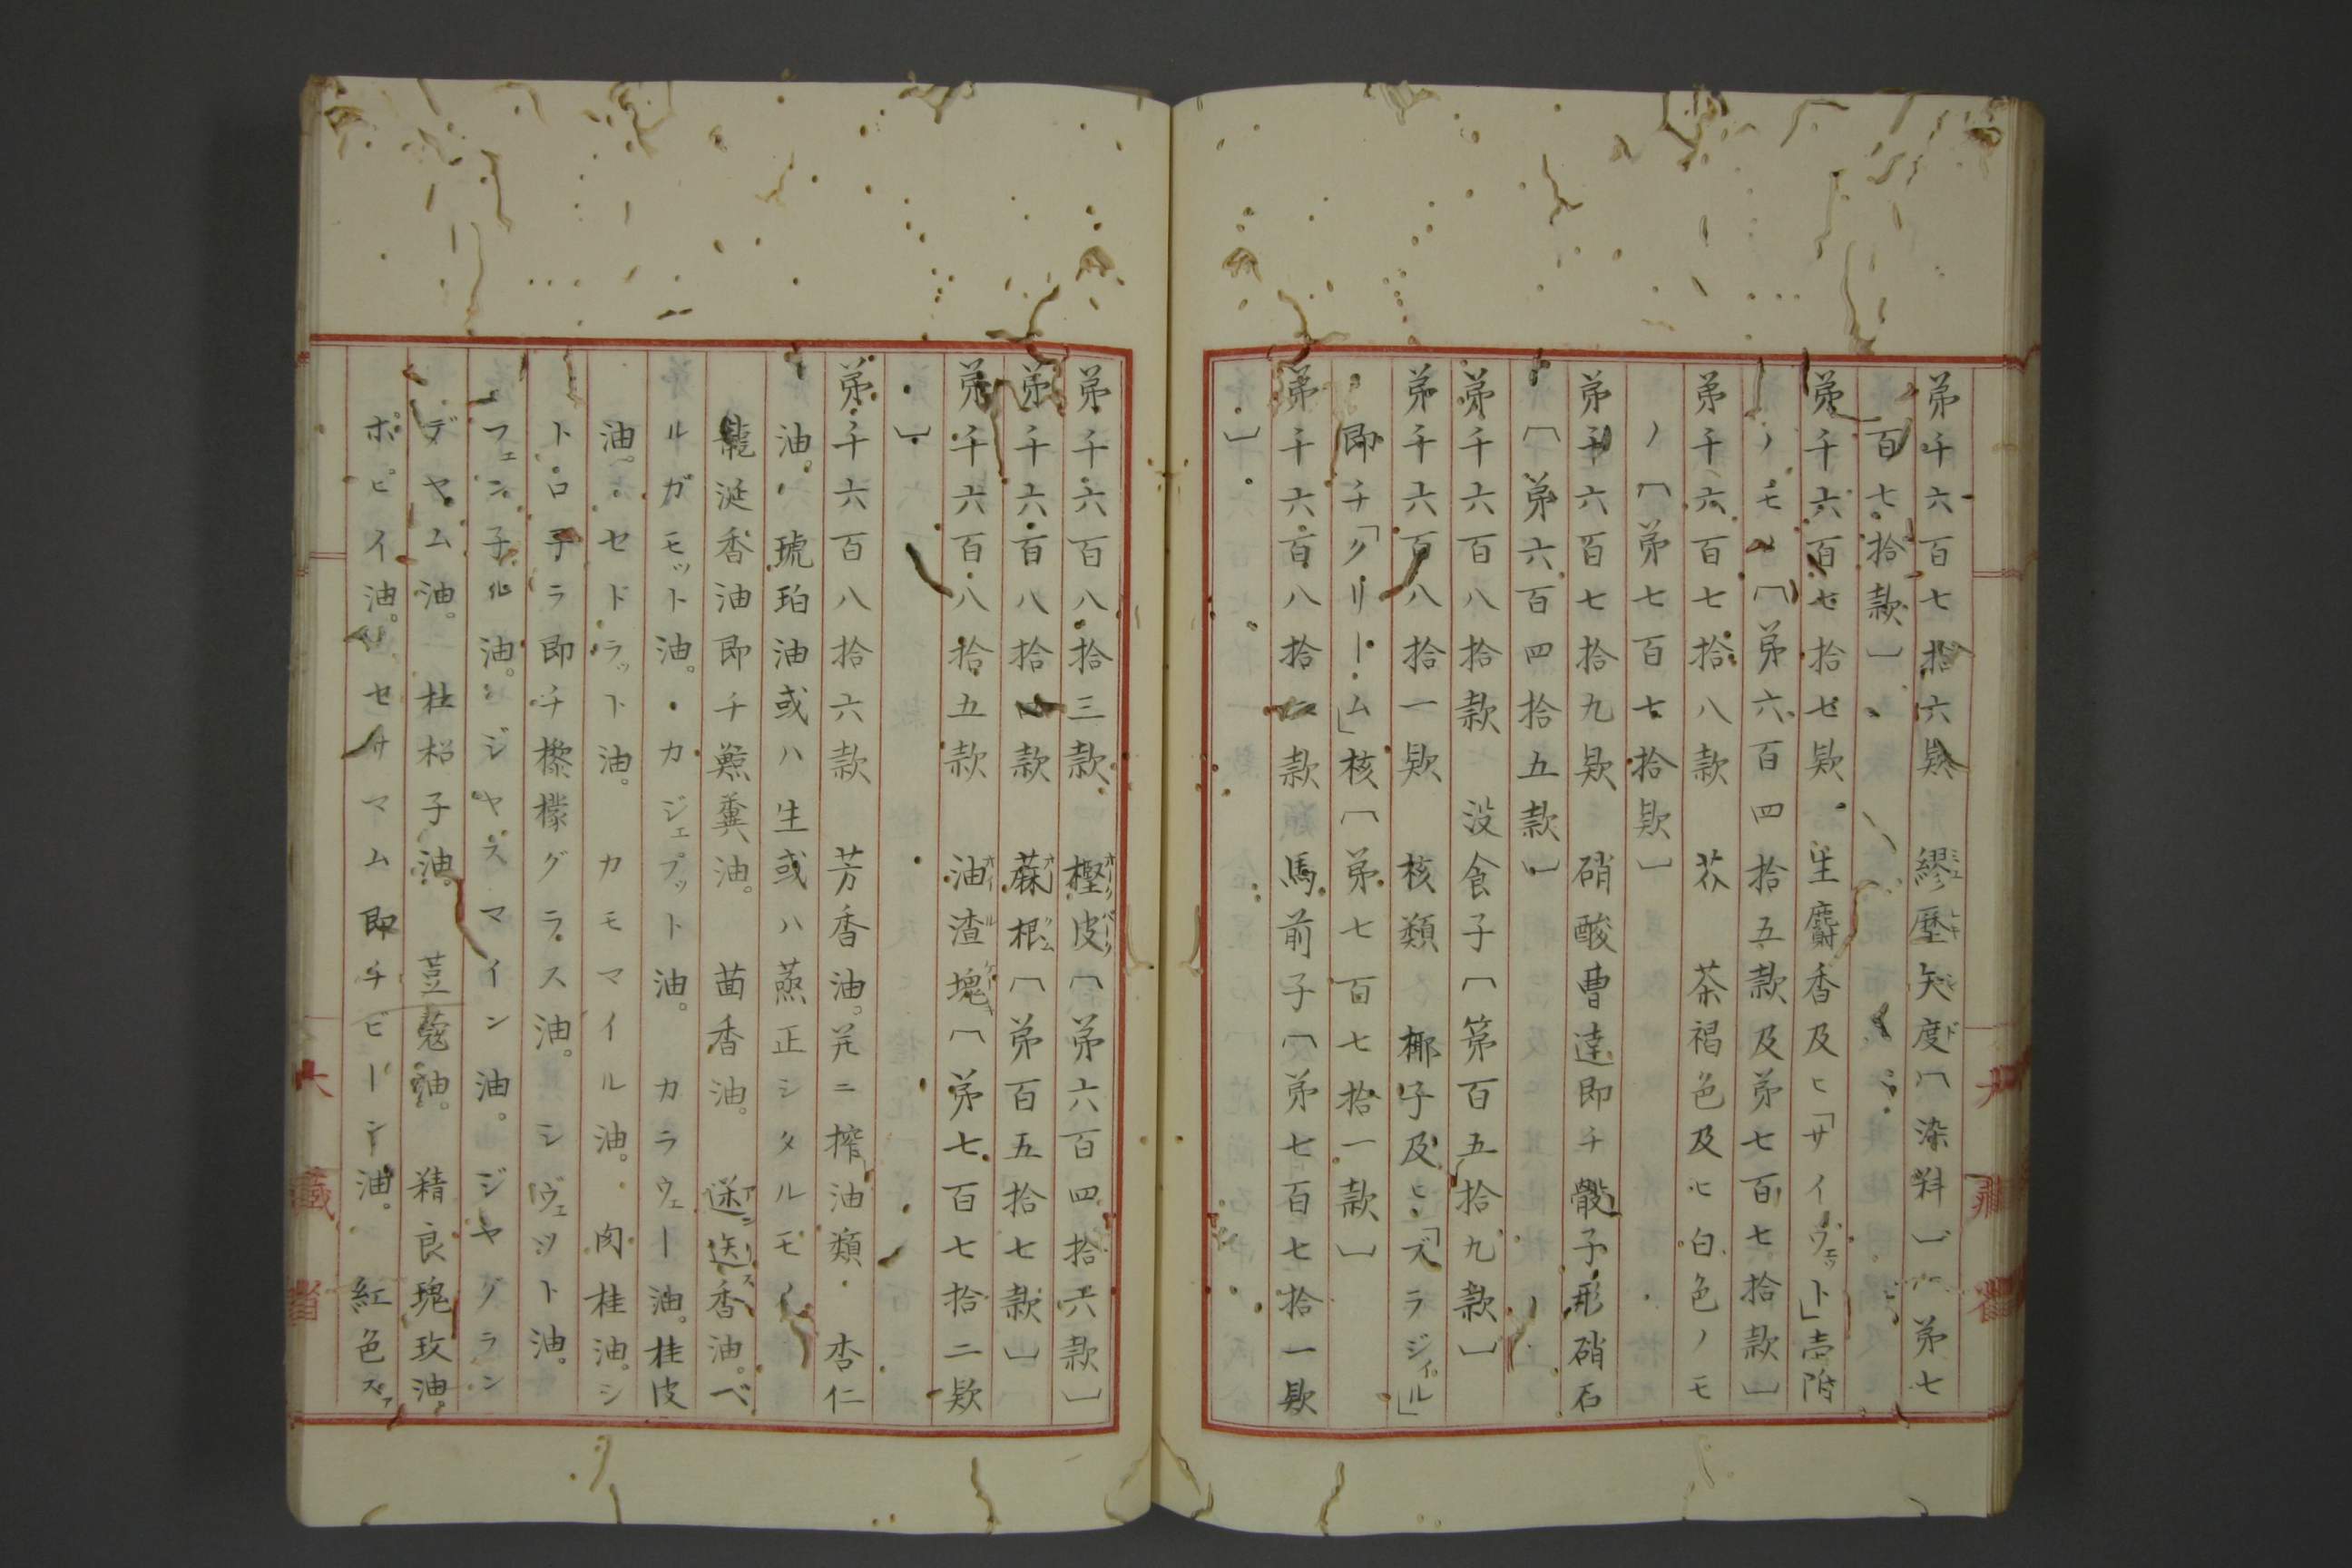 弟千六百七拾六欵　繆歴矢度〔染料〕〔弟七
百七拾款〕
弟千六百七拾七欵　生麝香及ヒ「サイウェット」壱附
ノモノ〔弟六百四拾五款及弟七百七拾款〕
弟千六百七拾八款　芥　茶褐色及ヒ白色ノモ
ノ〔弟七百七拾欵〕
弟千六百七拾九欵　硝酸曹達即チ骰子形硝石
〔弟六百四拾五款〕
弟千六百八拾款　没食子〔第百五拾九款〕
弟千六百八拾一欵　核類　椰子及ヒ「ズラジィル」
即チ「クリーム」核〔弟七百七拾一款〕
弟千六百八拾二款　馬前子〔弟七百七拾一欵
〕
弟千六百八拾三款　樫皮〔弟六百四拾六款〕
弟千六百八拾四款　蔴根〔弟百五拾七款〕
弟千六百八拾五款　油渣塊〔弟七百七拾二欵
〕
弟千六百八拾六款　芳香油。并ニ搾油類　杏仁
油。琥珀油或ハ生或ハ蒸正シタルモノ
龍涎香油即チ鯨糞油。茴香油。迷迭香油。ベ
ルガモット油。カジェプット油。カラウェー油。桂皮
油。セドラット油。カモマイル油。肉桂油。シ
トロ子ラ即チ檪檬グラス油。シヴェット油。
フェン子ル油。ジャスマイン油。ジャグラン
デヤム油。杜松子油。荳蔻油。精良瑰玫油。
ポピイ油。セサマム即チビーシ油。紅色ズァ
大藏省